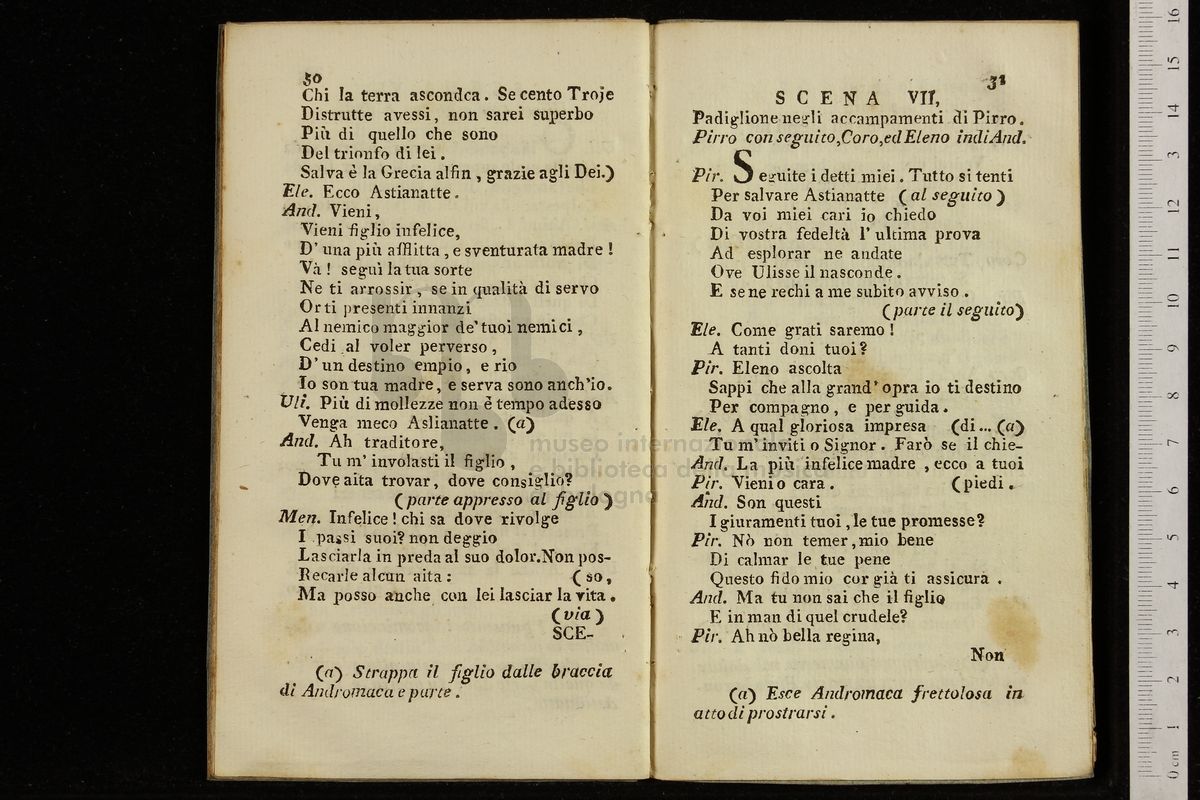 50
Chi la terra ascondca. Se cento Troje
Distrutte avessi, non sarei superbo
Più di quello che sono
Del trionfo di lei.
Salva è la Grecia alfin, grazie agli Dei.)
Ele. Ecco Astianatte.
And. Vieni,
Vieni figlio infelice,
D' una più afflitta, e sventurata madre!
Và! segui la tua sorte
Ne ti arrossir, se in qualità di servo
Or ti presenti innanzi
Al nemico maggior de' tuoi nemici,
Cedi al voler perverso,
D' un destino empio, e rio
Io son tua madre, e serva sono anch'io.
Uli. Più di mollezze non è tempo adesso
Venga meco Aslianatte. (a)
And. Ah traditore,
Tu m' involasti il figlio,
Dove aita trovar, dove consiglio?
(parte appresso al figlio)
Men. Infelice! chi sa dove rivolge
I passi suoi? non deggio
Lasciarla in preda al suo dolor. Non pos-
Recarle alcun aita: (so,
Ma posso anche con lei lasciar la vita.
(via)
SCE-
(a) Strappa il figlio dalle braccia
di Andromaca e parte.
31
SCENA VII,
Padiglione negli accampamenti di Pirro.
Pirro con seguito, Coro, ed Eleno indi And.
Pir. Seguite i detti miei. Tutto si tenti
Per salvare Astianatte (al seguito)
Da voi miei cari io chiedo
Di vostra fedeltà l' ultima prova
Ad esplorar ne andate
Ove Ulisse il nasconde.
E se ne rechi a me subito avviso.
(parte il seguito)
Ele. Come grati saremo!
A tanti doni tuoi?
Pir. Eleno ascolta
Sappi che alla grand' opra io ti destino
Per compagno, e per guida.
Ele. A qual gloriosa impresa (di... (a)
Tu m' inviti o Signor. Farò se il chie-
And. La più infelice madre, ecco a tuoi
Pir. Vieni o cara. (piedi.
And. Son questi
I giuramenti tuoi, le tue promesse?
Pir. Nò non temer, mio bene
Di calmar le tue pene
Questo fido mio cor già ti assicura.
And. Ma tu non sai che il figlio
E in man di quel crudele?
Pir. Ah nò bella regina,
Non
(a) Esce Andromaca frettolosa in
atto di prostrarsi.
museo internazionale
e biblioteca della musica
bologna
0 cm 1 2 3 4 5 6 7 8 9 10 11 12 13 14 15 16